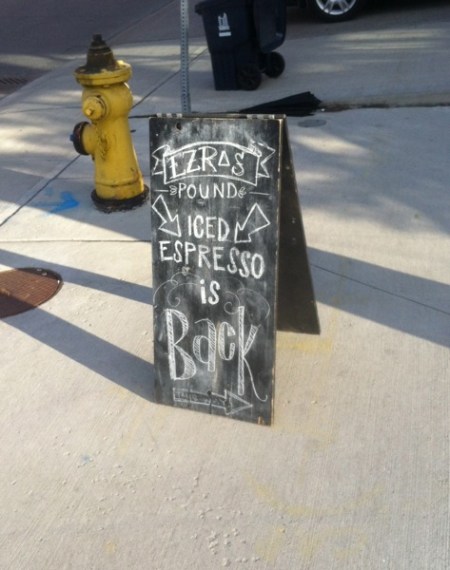 EZRAS
POUND
ICED
ESPRESSO
is
Back
THIS WAY